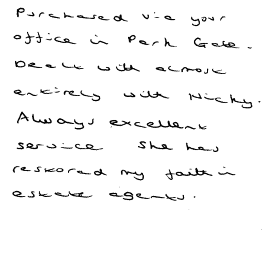 Purchased via your
office in Park Gate.
Dealt with almost
entirely with Nicky.
Always excellent
service she has
restored my faith in
estate agents.